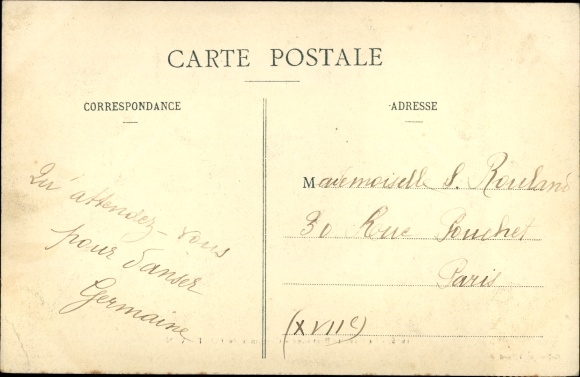 CARTE POSTALE
CORRESPONDANCE
ADRESSE
Qu'attendez-vous
pour danser
Germaine
Mademoiselle S. Rouland
30 Rue Pouchet
Paris
(XVIIe)